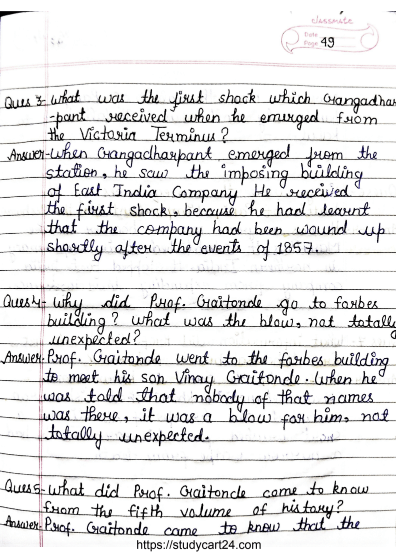 classmate
Date
Page 49
Ques 3- what was the first shock which Gangadhar
-pant received when he emerged from
the Victoria Terminus?
Answer- When Gangadharpant emerged from the
station, he saw the imposing building
of East India Company He received
the first shock, because he had learnt
that the company had been wound up
shortly after the events of 1857.
Ques 4- why did Prof. Gaitonde go to forbes
building? what was the blow, not totally
unexpected?
Answer- Prof. Gaitonde went to the forbes building
to meet his son Vinay Gaitonde. When he
was told that nobody of that names
was there, it was a blow for him, not
totally unexpected.
Ques 5- what did Prof. Gaitonde come to know
from the fifth volume of history?
Answer- Prof. Gaitonde came to know that the
https://studycart24.com